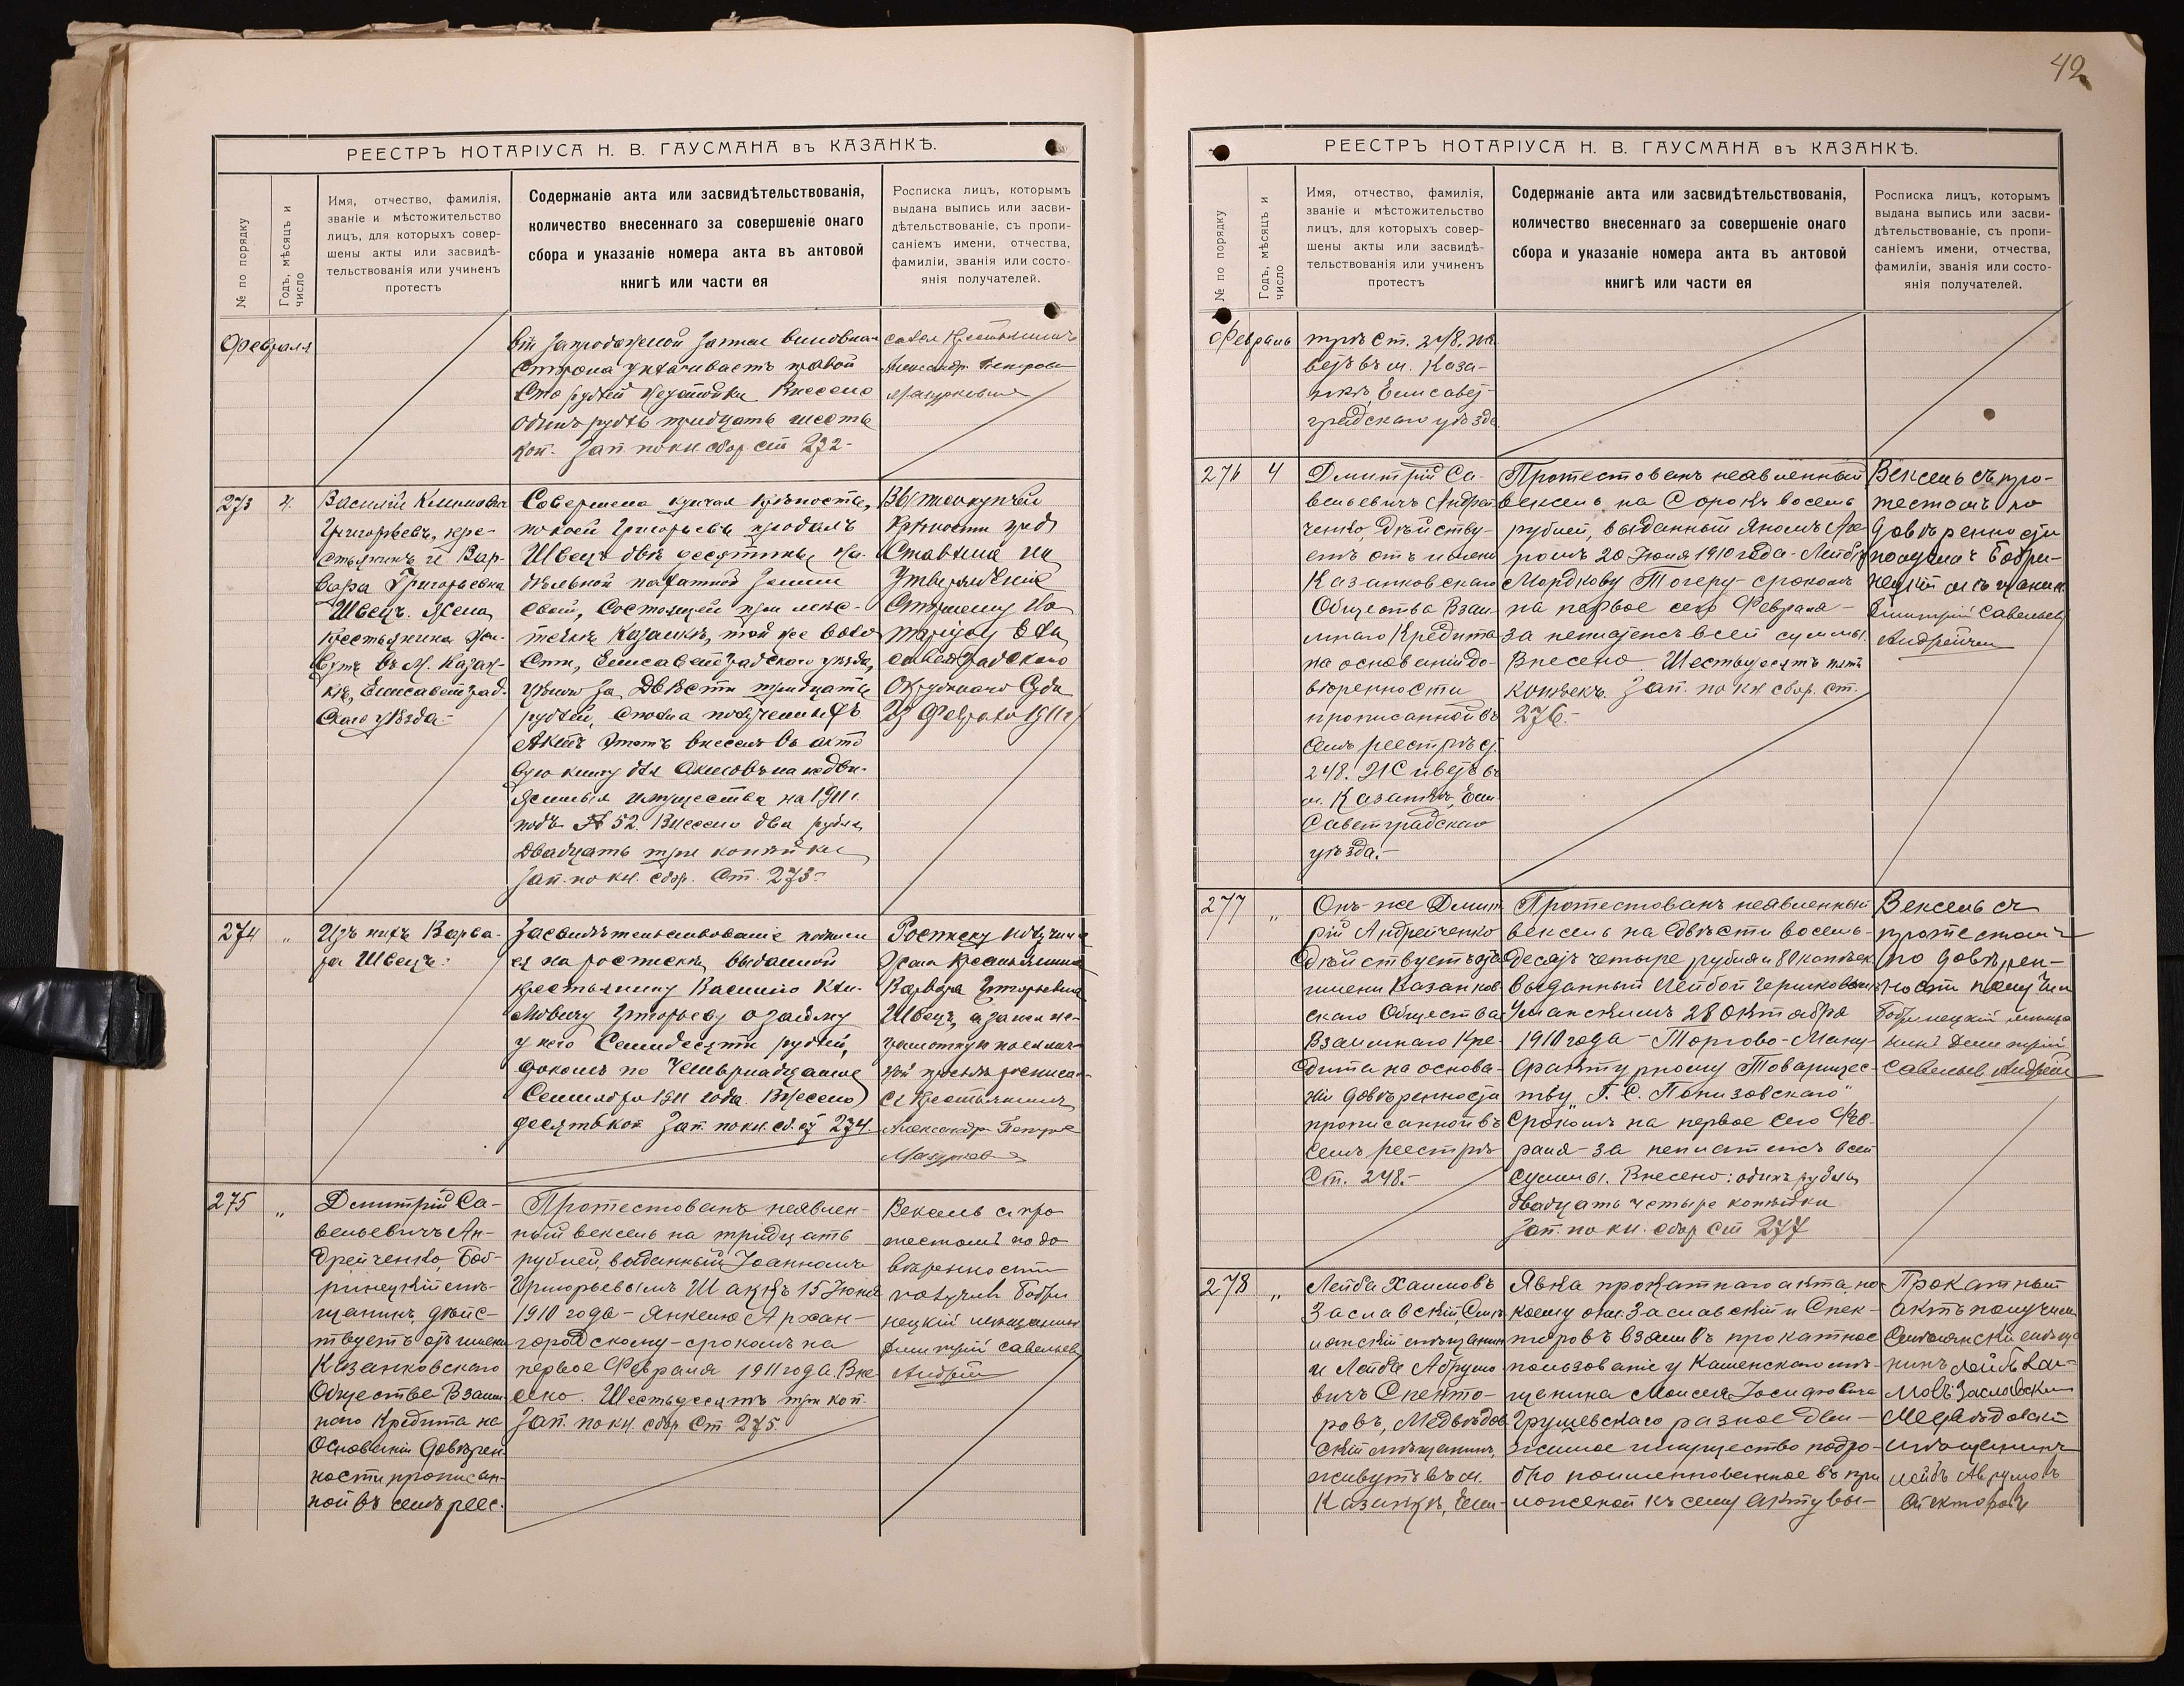 42
РЕЕСТРЪ НОТАРІУСА Н. В. ГАУСМАНА въ КАЗАНКѢ.
№ по порядку
Годъ, мѣсяцъ и
число
Имя, отчество, фамилія,
званіе и мѣстожительство
лицъ, для которыхъ совер-
шены акты или засвидѣ-
тельствованія или учиненъ
протестъ
Содержаніе акта или засвидѣтельствованія,
количество внесеннаго за совершеніе онаго
сбора и указаніе номера акта въ актовой
книгѣ или части ея
Росписка лицъ, которымъ
выдана выпись или засви-
дѣтельствованіе, съ пропи-
саніемъ имени, отчества,
фамиліи, званія или состо-
янія получателей.
Февраля
запроданной земли виновная
сторона уплачиваетъ правой
Сто рублей неустойки. Внесено
одинъ рубль тридцать шесть
коп. Зап. по кн сбор ст 272-
Александр Петровъ
273
4.
Василій Климовичъ
Григорьевъ, кре-
стьянинъ и Вар-
вара Григорьевна
Швецъ, жена
крестьянина, жи-
вутъ въ м. Казан-
кѣ, Елисаветград-
скаго уѣзда.-
Совершена купчая крѣпость,
по коей Григорьевъ продалъ
Швецъ двѣ десятины на-
дѣльной пахатной земли
своей, состоящей при мѣс-
течкѣ Казанкѣ, той же воло
сти, Елисаветградскаго уѣзда,
цѣною за Двѣсти тридцать
рублей, сполна полученныхъ
Актъ этотъ внесенъ въ акто
вую книгу для актовъ на недви-
жимыя имущества на 1911 г.
подъ № 52. Внесено два рубля
двадцать три копѣйки
Зап. по кн. сбор. Ст. 273.-
Выпись купчей
крѣпости пред
ставлена на
Утвержденіе
Старшему Но
таріусу Ели
саветградскаго
Окружнаго Суда
23 Февраля 1911 г.
274
„
Изъ нихъ Варва-
ра Швецъ.
Засвидѣтельствованіе подписи
ея на роспискѣ, выданной
крестьянину Василію Кли-
мовичу Григорьеву о займѣ
у него Семидесяти рублей,
срокомъ по Четырнадцатое
Сентября 1911 года. Внесено
десять коп Зап. по кн. сб. ст 274.
Росписку получила
Жена крестьянина
Варвара Григорьевна
Швецъ, а за нея не-
грамотную по ея лич-
ной просьбѣ росписал-
ся Крестьянинъ
Александр Петров
275
„
Дмитрій Са-
вельевичъ Ан-
дрейченко, Боб-
ринецкій мѣ-
щанинъ, дѣйс-
твуетъ отъ имени
Казанковскаго
Общества Взаим-
наго Кредита на
Основаніи Довѣрен-
ности прописан-
ной въ семъ реес-
Протестованъ неявлен-
ный вексель на тридцать
рублей, выданный Іоанномъ
Григорьевымъ 15 Іюня
1910 года - Янкелю Архан-
городскому - срокомъ на
первое Февраля 1911 года. Вне
сено. Шестьдесятъ три коп.
Зап. по кн. сбор. Ст 275.
Вексель с про
тестомъ по до
вѣренности
получилъ Бобри
нецкій мѣщанинъ
Дмитрій Савельев
Андрей
РЕЕСТРЪ НОТАРІУСА Н. В. ГАУСМАНА въ КАЗАНКѢ.
№ по порядку
Годъ, мѣсяцъ и
число
Имя, отчество, фамилія,
званіе и мѣстожительство
лицъ, для которыхъ совер-
шены акты или засвидѣ-
тельствованія или учиненъ
протестъ
Содержаніе акта или засвидѣтельствованія,
количество внесеннаго за совершеніе онаго
сбора и указаніе номера акта въ актовой
книгѣ или части ея
Росписка лицъ, которымъ
выдана выпись или засви-
дѣтельствованіе, съ пропи-
саніемъ имени, отчества,
фамиліи, званія или состо-
янія получателей.
Февраль
трѣ ст. 248. Жи
ветъ въ м. Каза-
нкѣ, Елисавет-
градскаго уѣзда.
276
4
Дмитрій Са-
вельевичъ Андрей
ченко, Дѣйству-
етъ отъ имени
Казанковскаго
Общества Взаи-
мнаго Кредита
на основаніи до-
вѣренности
прописанной въ
семъ реестрѣ ст.
248. Живетъ въ
м. Казанкѣ, Ели-
саветградскаго
уѣзда.-
Протестованъ неявленный
вексель на Сорокъ восемь
рублей, выданный
20 Іюня 1910 года - Лейбѣ
Мордкову Тогеру - срокомъ
на первое сего Февраля -
за неплатежъ всей суммы.
Внесено Шестьдесятъ пять
копѣекъ. Зап. по кн сбор. ст.
276.-
Вексель съ про-
тестомъ по
Довѣренности
получилъ Бобри-
нецкій мѣщанин
Дмитрій Савельев
Андрейчен
277
„
Онъ-же Дмит-
рій Андрейченко
дѣйствуетъ отъ
имени Казанков-
скаго Общества
Взаимнаго Кре-
дита на основа-
ніи довѣренности
прописанной въ
семъ реестрѣ
Ст. 248.-
Протестованъ неявленный
вексель на двѣсти восемь-
десятъ четыре рубля и 80 копѣек
выданный Лейбой Герш
Уманскимъ 28 Октября
1910 года - Торгово-Ману-
фактурному Товарищес-
тву „Г. С. Понизовскаго"
срокомъ на первое сего Фев-
раля - за неплатежъ всей
суммы. Внесено: одинъ рубль
двадцать четыре копѣйки
Зап. по кн. сбор ст 277
Вексель съ
протестомъ
по довѣрен-
ности получил
Бобринецкій мѣща
нинъ Дмитрій
Савельев Андрей
278
„
Лейба Хаимовъ
Заславскій,
мѣщанинъ
и Лейба Абрумо
вичъ Спекто-
ровъ, Медвѣдов
скій мѣщанинъ,
живутъ въ м.
Казанкѣ, Ели-
Явка прокатнаго акта, по
коему они: Заславскій и Спек-
торовъ взяли въ прокатное
пользованіе у Каменскаго мѣ-
щанина Моисея Іосифовича
Грушевскаго разное дви-
жимое имущество подро-
бно поименованное въ при
ложенной къ сему акту вы-
Прокатный
актъ получили
мѣща
нинъ Лейба Хаи-
мовъ Заславскій
Медвѣдовскій
мѣщанинъ
Лейбъ Аврумовъ
Спекторовъ